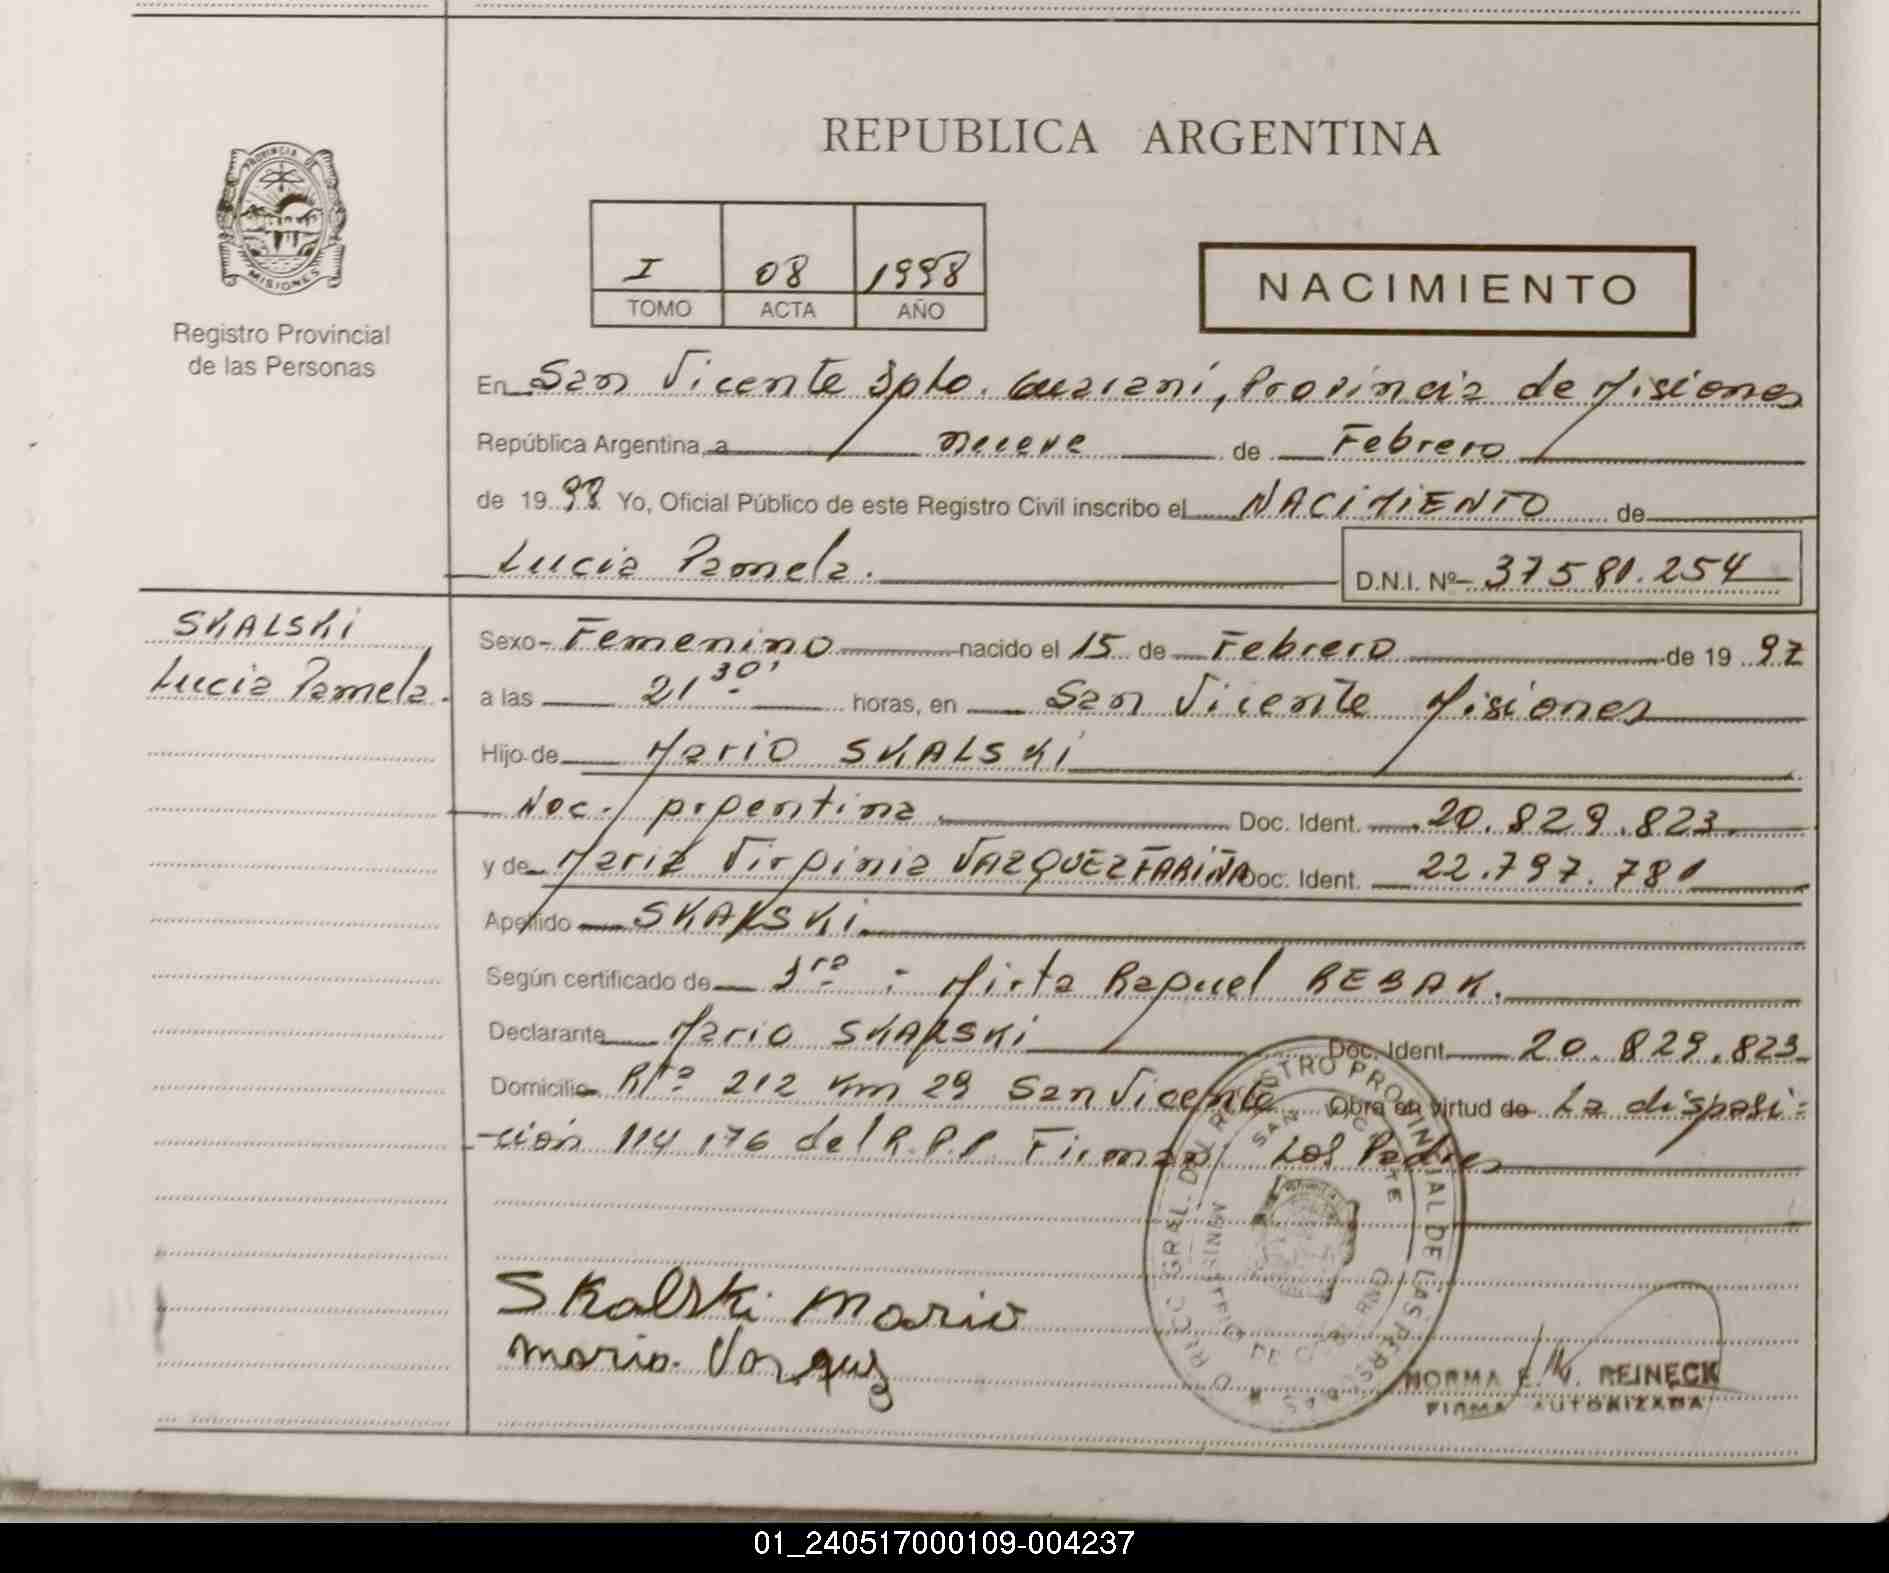 REPUBLICA ARGENTINA
PROVINCIA DE
MISIONES
Registro Provincial
de las Personas
I 08 1998
TOMO ACTA AÑO
NACIMIENTO
En San Vicente Dpto. Guaraní, Provincia de Misiones
República Argentina, a nueve de Febrero
de 1998 Yo, Oficial Público de este Registro Civil inscribo el NACIMIENTO de
Lucia Pamela. D.N.I. Nº 37581.254
SKALSKI
Lucia Pamela.
Sexo Femenino nacido el 15 de Febrero de 1997
a las 21 30' horas, en San Vicente Misiones
Hijo de Mario SKALSKI
Nac. Argentina Doc. Ident. 20.829.823
y de Maria Virginia VAZQUEZ FARIÑA Doc. Ident. 22.797.781
Apellido SKALSKI
Según certificado de Mirta Raquel REBAK.
Declarante Mario SKALSKI Doc. Ident. 20.829.823
Domicilio Rta 212 Km 29 San Vicente Obra en virtud de La disposi-
ción 114/76 del R.P.P. Firman: Los Padres
Skalski Mario
Maria Vazquez
REGISTRO PROVINCIAL DE LAS PERSONAS
SAN VICENTE
NORMA REINECK
FIRMA AUTORIZADA
01_240517000109-004237